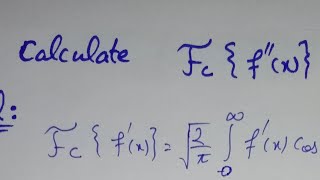 Calculate F_c { f''(x) }
:
F_c { f'(x) } = √(2/π) ∫_0^∞ f'(x) cos